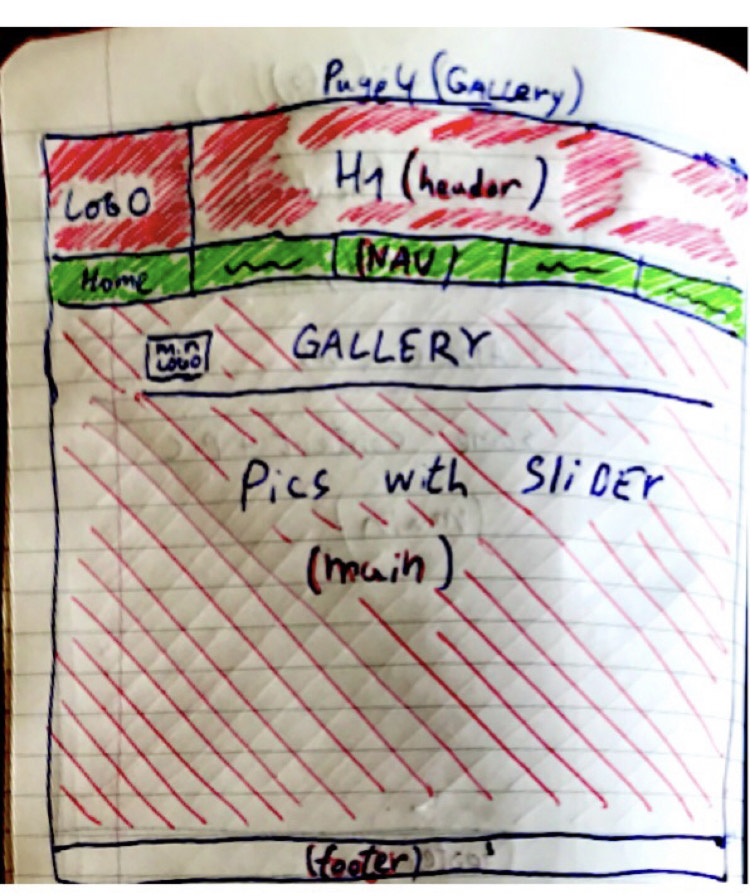 Page 4 (GALLery)
LOGO
H1 (header)
Home
(NAV)
min LOGO
GALLERY
Pics with SliDEr
(main)
(footer)